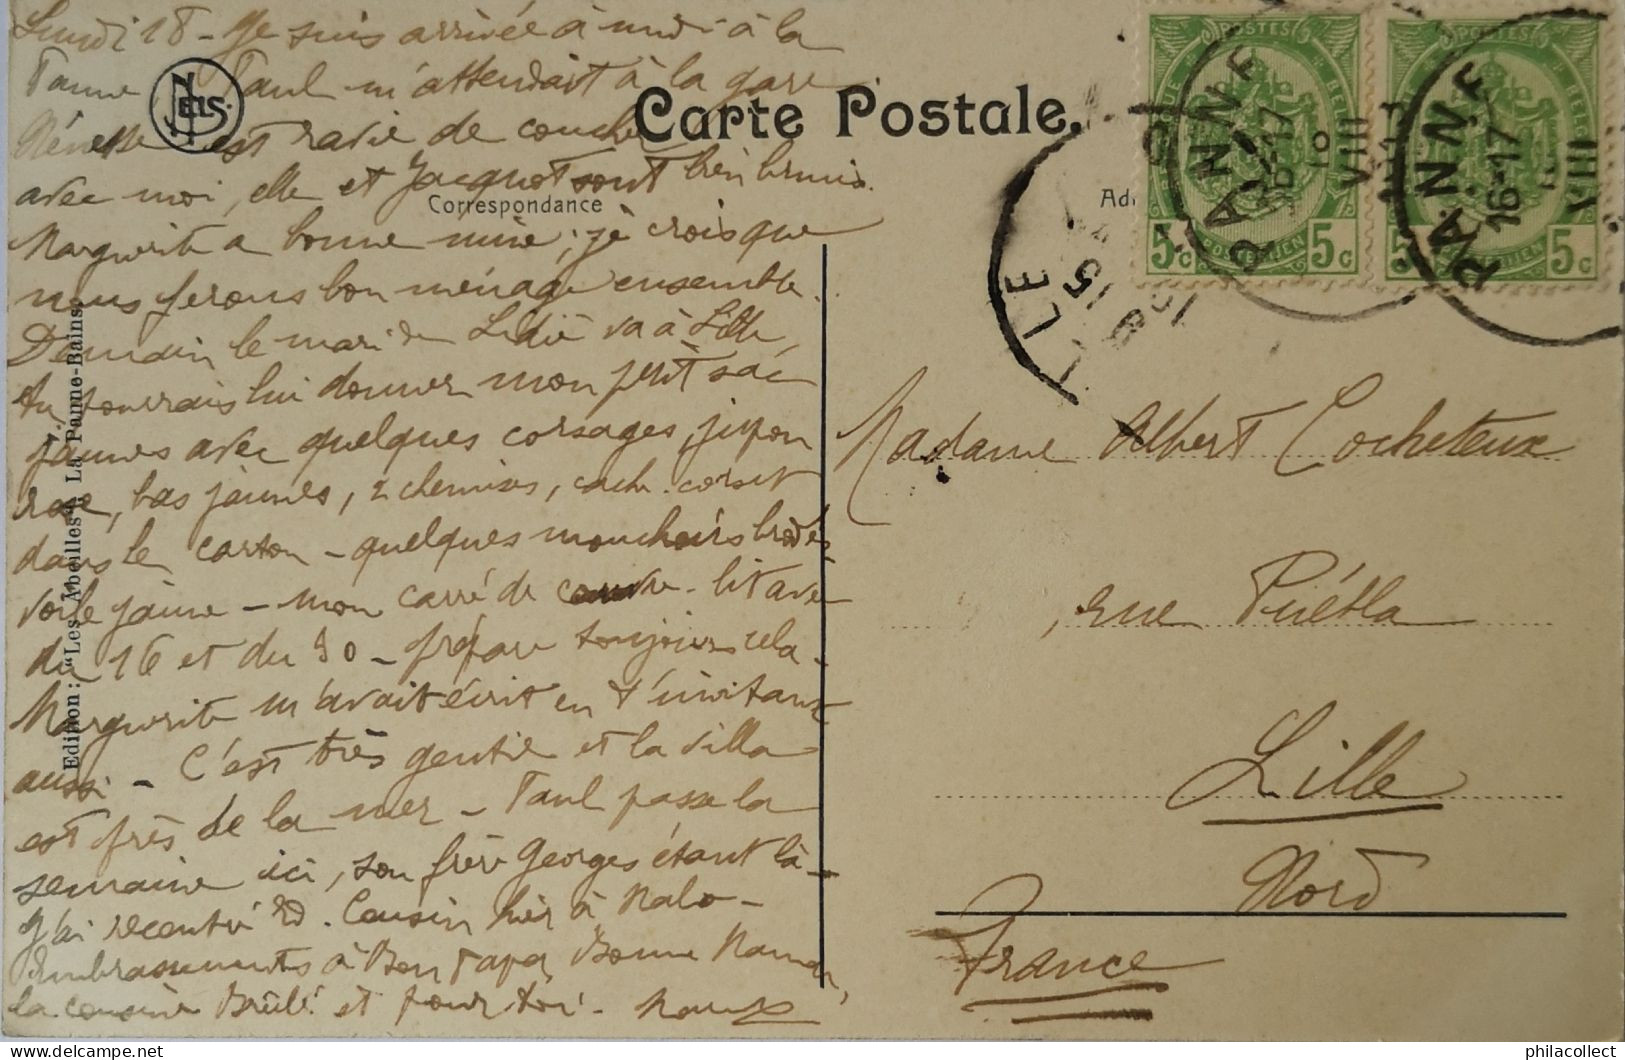 Lundi 18 - Je suis arrivée à midi à la
Panne, Paul m'attendait à la gare
est ravie de coucher
avec moi, elle et Jacquot sont bien brunis.
Marguerite a bonne mine ; je crois que
nous ferons bon ménage ensemble.
Demain le mari de Lidie va à Lille,
tu pourrais lui donner mon petit sac
jaunes avec quelques corsages, jupon
rose, bas jaunes, 2 chemises, cache-corset
dans le carton - quelques mouchoirs brodés
voile jaune - mon carré de
du 16 et du 30 - prépare toujours cela -
Marguerite m'avait écrit en t'invitant
aussi - C'est très gentil et la villa
est près de la mer - Paul passe la
semaine ici, son frère Georges étant là -
J'ai rencontré Cousin hier à Malo -
Embrassements à Bon Papa, Bonne Maman,
la cousine Brûlé et pour toi -
NELS
Carte Postale.
Correspondance
Edition : "Les Abeilles" La Panne-Bains.
POSTES
BELGIQUE
5c POSTERIJEN 5c
POSTES
BELGIQUE
5c POSTERIJEN 5c
PANNE
16-17
18
VIII
PANNE
16-17
VIII
LILLE
15
Madame Albert Cocheteux
rue Puébla
Lille
Nord
France
philacollect